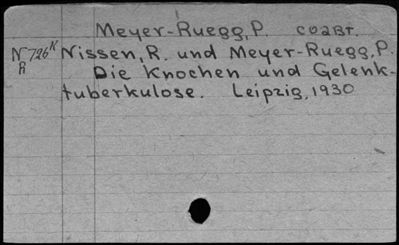 Meyer-Ruegg, P. соавт.
N 726К Nissen, R. und Meyer-Ruegg, P.
R Die Knochen und Gelenk-
tuberkulose. Leipzig, 1930